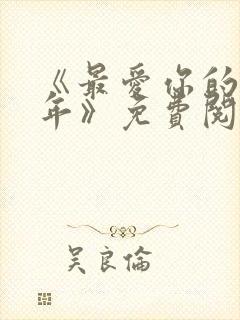 《最爱你的
年》免費閱
吴良倫